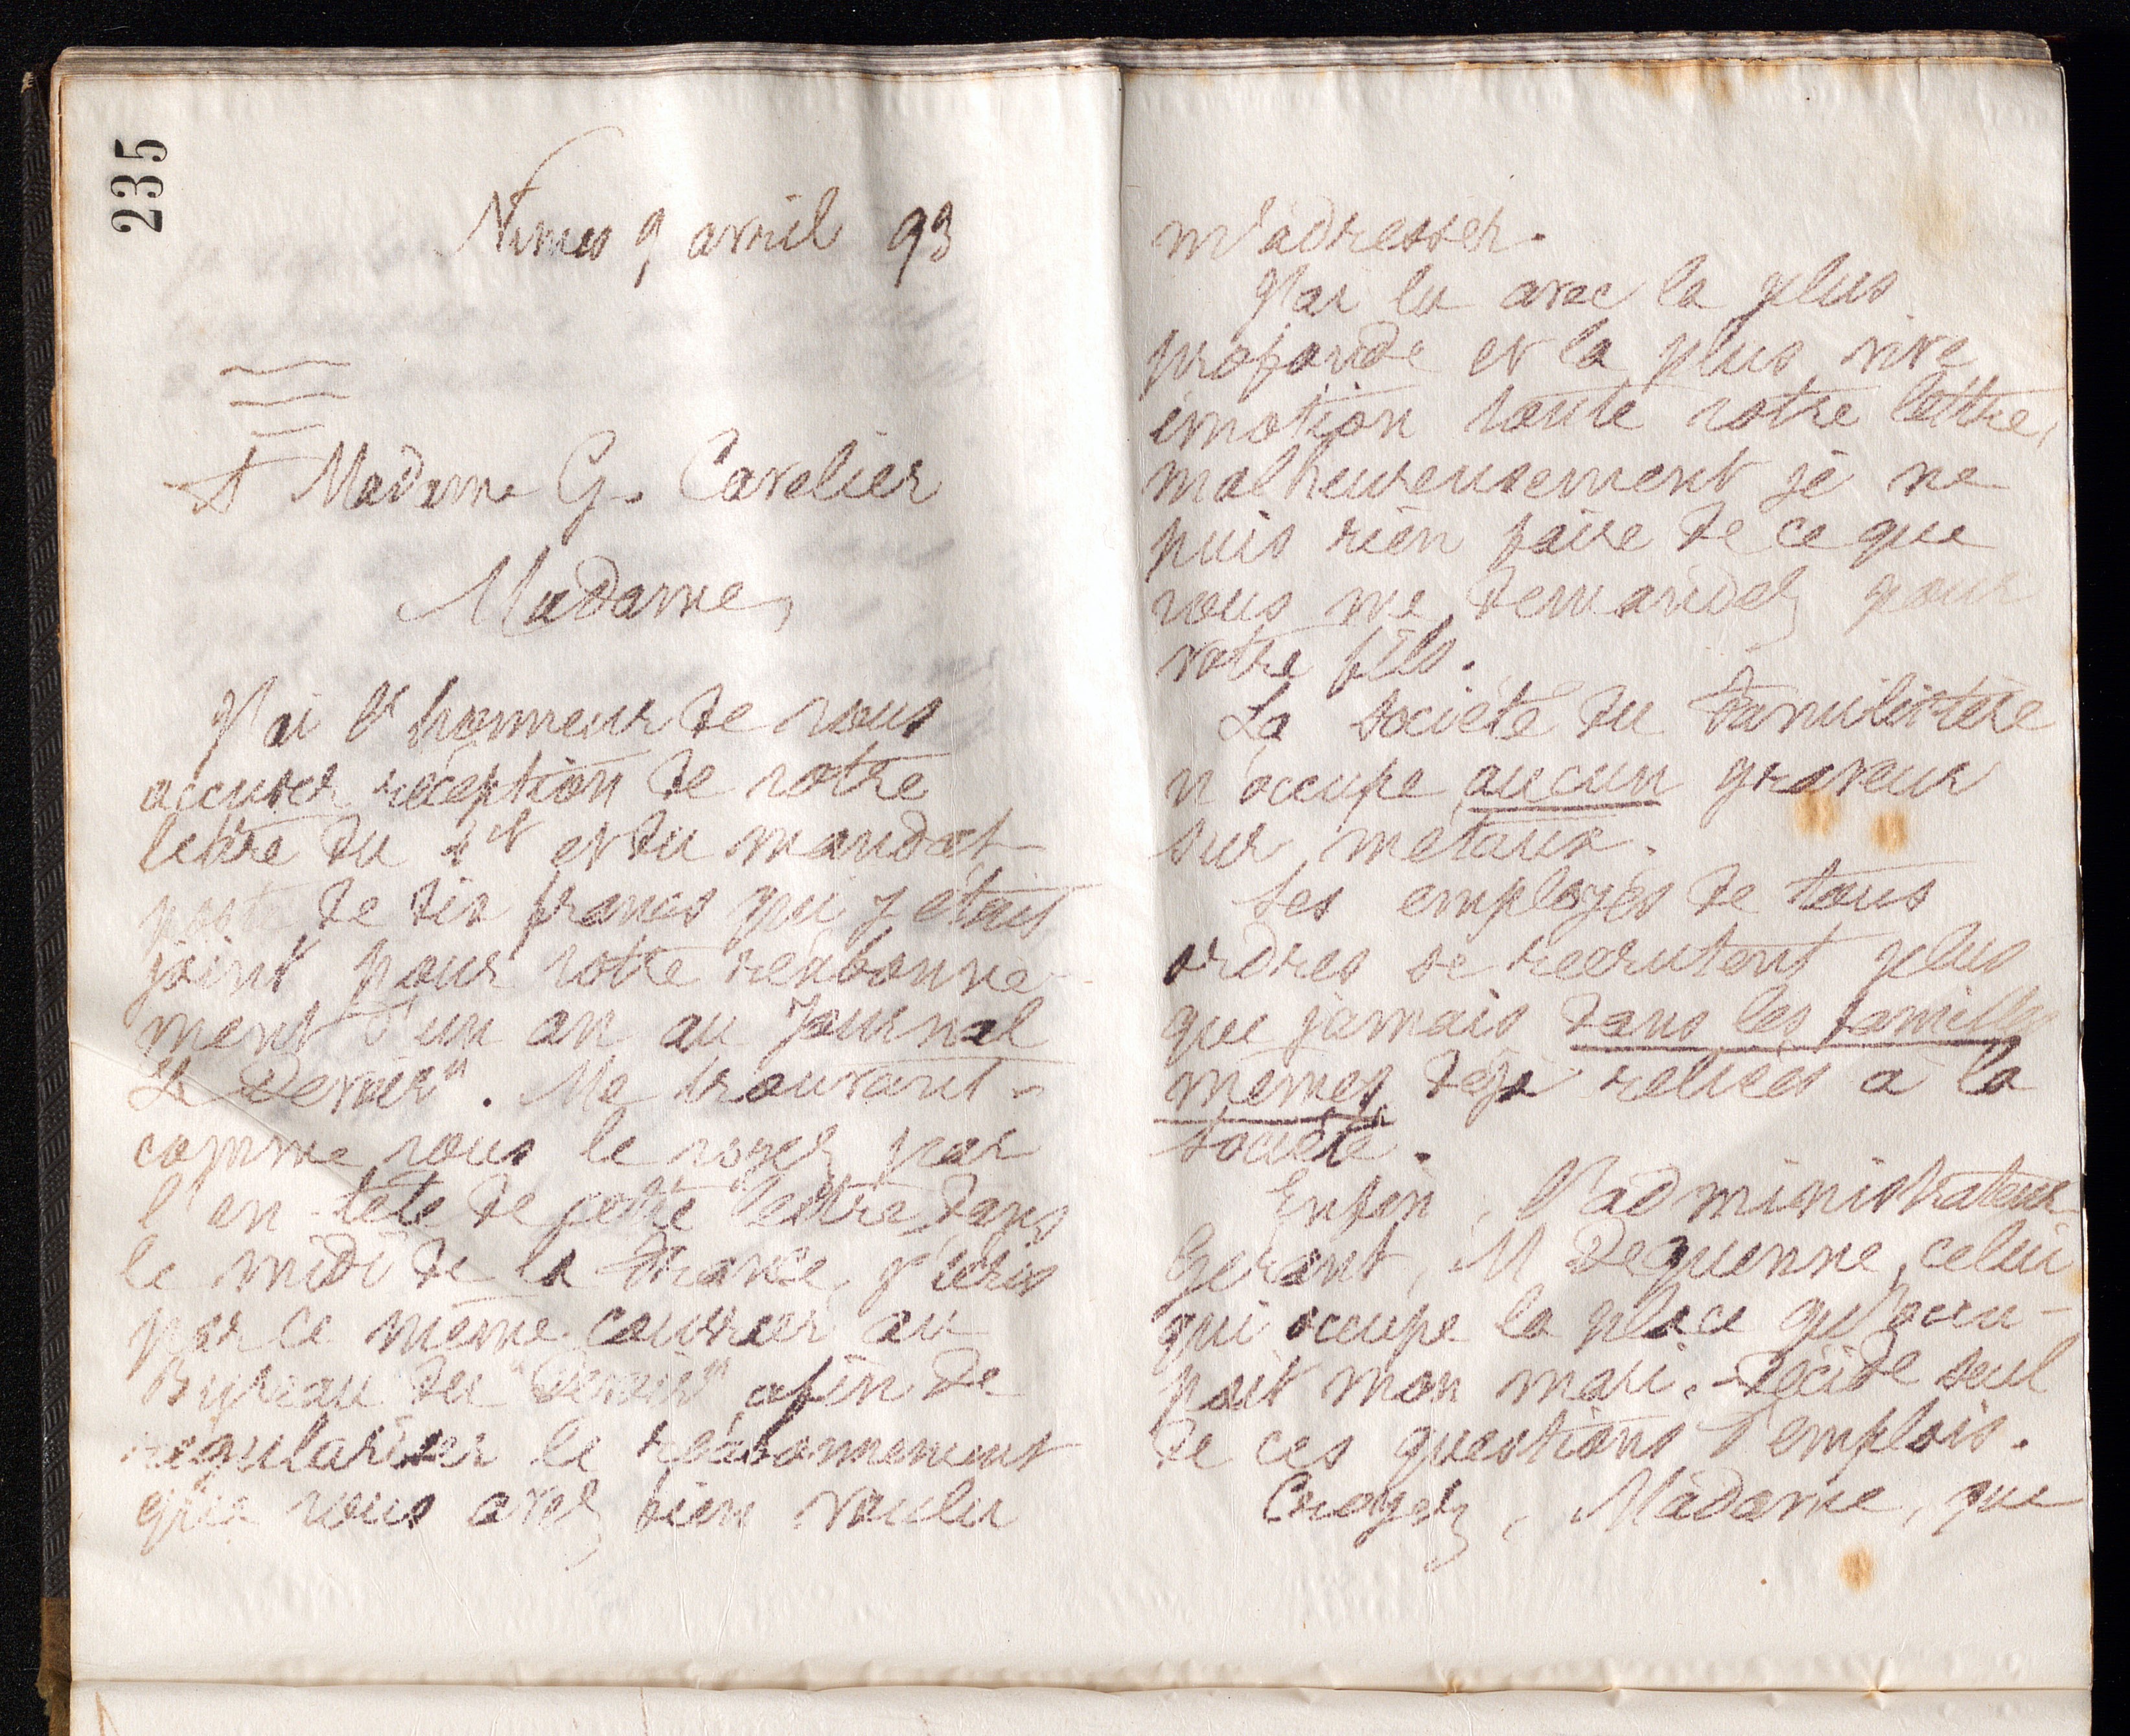 235
Nimes 9 avril 93
A Madame G. Cavelier
Madame,
J'ai l'honneur de vous
accuser réception de votre
lettre du 1er et du mandat-
poste de dix francs qui y était
joint pour votre réabonne-
ment d'un an au Journal
Le Devoir". Me trouvant -
comme vous le voyez par
l'en-tête de cette lettre dans
le midi de la France, j'écris
par ce même courrier au
Bureau du "Devoir" afin de
régulariser le réabonnement
que vous avez bien voulu
m'adresser.
J'ai lu avec la plus
profonde et la plus vive
émotion toute votre lettre,
malheureusement je ne
puis rien faire de ce que
vous me demandez pour
votre fils.
La société du Familistère
n'occupe aucun graveur
sur métaux.
Les employés de tous
ordres se recrutent plus
que jamais dans les familles
mêmes déjà reliées à la
société.
Enfin, l'administrateur
Gérant, M Dequenne, celui
qui occupe la place qu'occu-
pait mon mari, décide seul
de ces questions d'emplois.
Croyez, Madame, que